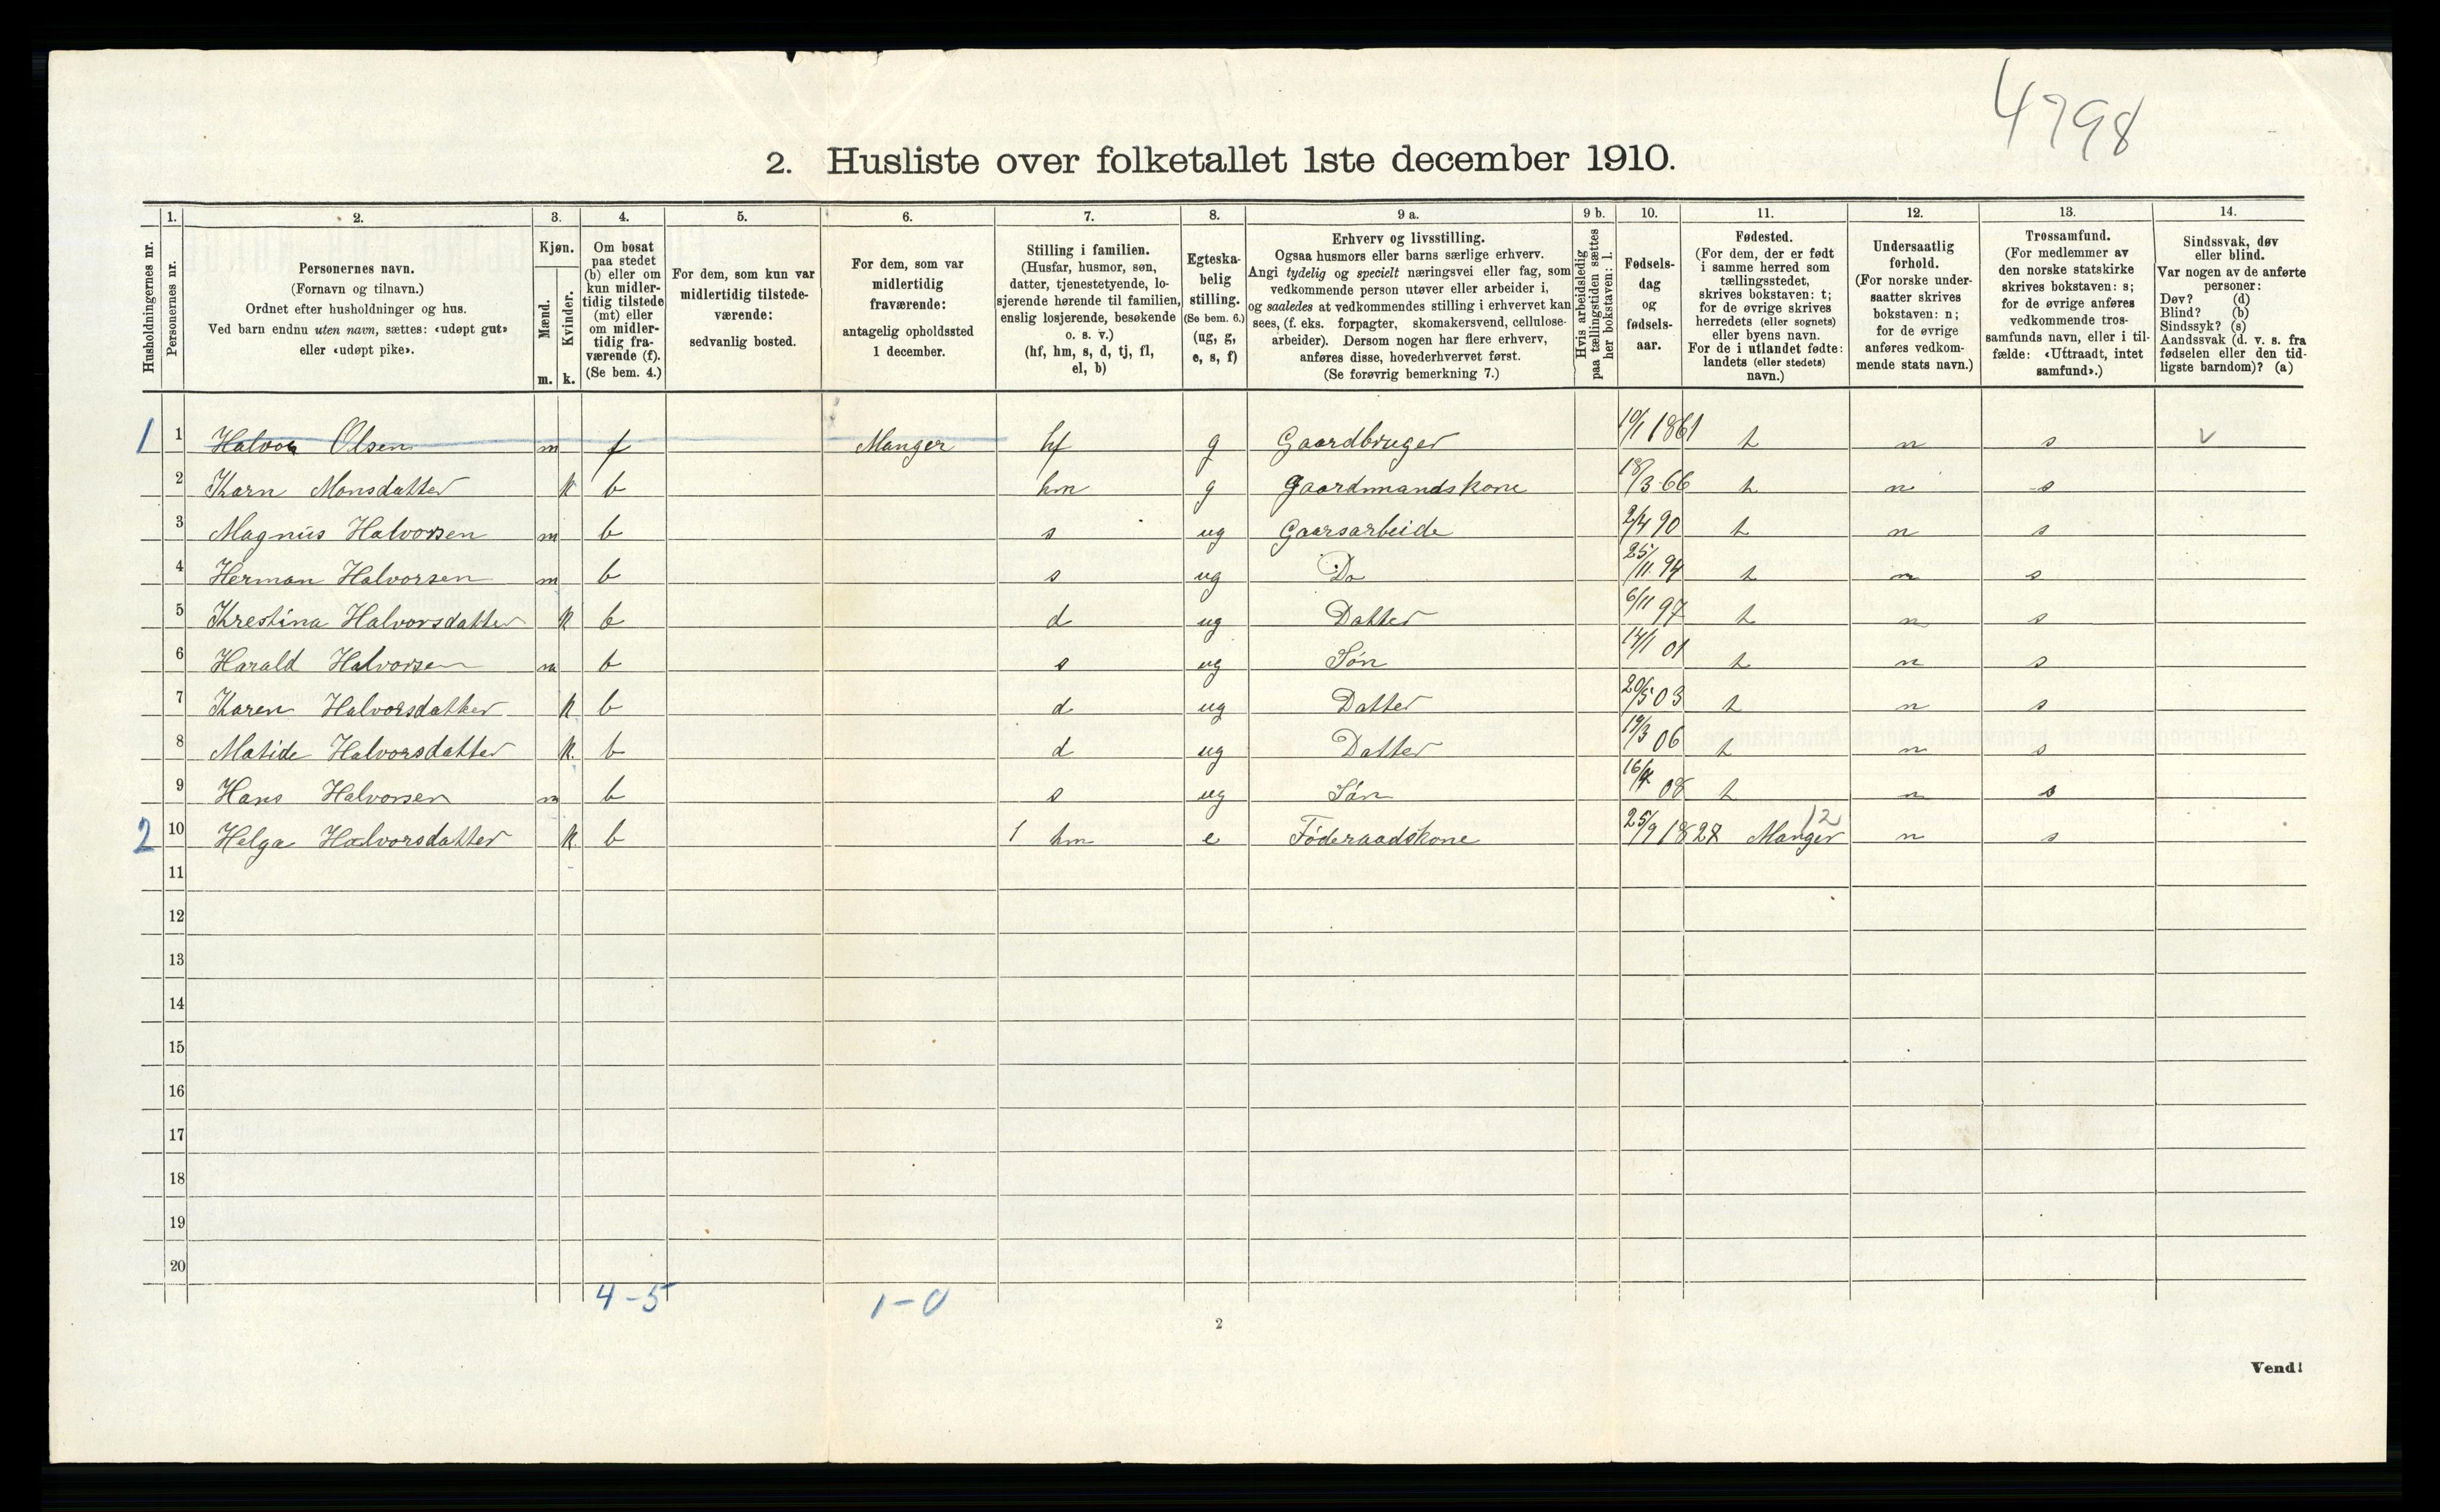 4798
2. Husliste over folketallet 1ste december 1910.
1. 2. 3. 4. 5. 6. 7. 8. 9 a. 9 b. 10. 11. 12. 13. 14.
Husholdningernes nr.
Personernes nr.
Personernes navn.
(Fornavn og tilnavn.)
Ordnet efter husholdninger og hus.
Ved barn endnu uten navn, sættes: «udøpt gut»
eller «udøpt pike».
Kjøn.
Mænd.
Kvinder.
m. k.
Om bosat
paa stedet
(b) eller om
kun midler-
tidig tilstede
(mt) eller
om midler-
tidig fra-
værende (f).
(Se bem. 4.)
For dem, som kun var
midlertidig tilstede-
værende:
sedvanlig bosted.
For dem, som var
midlertidig
fraværende:
antagelig opholdssted
1 december.
Stilling i familien.
(Husfar, husmor, søn,
datter, tjenestetyende, lo-
sjerende hørende til familien,
enslig losjerende, besøkende
o. s. v.)
(hf, hm, s, d, tj, fl,
el, b)
Egteska-
belig
stilling.
(Se bem. 6.)
(ug, g,
e, s, f)
Erhverv og livsstilling.
Ogsaa husmors eller barns særlige erhverv.
Angi tydelig og specielt næringsvei eller fag, som
vedkommende person utøver eller arbeider i,
og saaledes at vedkommendes stilling i erhvervet kan
sees, (f. eks. forpagter, skomakersvend, cellulose-
arbeider). Dersom nogen har flere erhverv,
anføres disse, hovederhvervet først.
(Se forøvrig bemerkning 7.)
Hvis arbeidsledig
paa tællingstiden sættes
her bokstaven: l.
Fødsels-
dag
og
fødsels-
aar.
Fødested.
(For dem, der er født
i samme herred som
tællingsstedet,
skrives bokstaven: t;
for de øvrige skrives
herredets (eller sognets)
eller byens navn.
For de i utlandet fødte:
landets (eller stedets)
navn.)
Undersaatlig
forhold.
(For norske under-
saatter skrives
bokstaven: n;
for de øvrige
anføres vedkom-
mende stats navn.)
Trossamfund.
(For medlemmer av
den norske statskirke
skrives bokstaven: s;
for de øvrige anføres
vedkommende tros-
samfunds navn, eller i til-
fælde: «Uttraadt, intet
samfund».)
Sindssvak, døv
eller blind.
Var nogen av de anførte
personer:
Døv? (d)
Blind? (b)
Sindssyk? (s)
Aandssvak (d. v. s. fra
fødselen eller den tid-
ligste barndom)? (a)
1 1 Halvor Olsen m f Manger hf g Gaardbruger 10/1 1861 t n s v
2 Karn Monsdatter k b hm g Gaardmandskone 18/3 66 t n s
3 Magnus Halvorsen m b s ug Gaarsarbeide 2/4 90 t n s
4 Herman Halvorsen m b s ug Do 25/11 94 t n s
5 Krestina Halvorsdatter k b d ug Datter 6/11 97 t n s
6 Harald Halvorsen m b s ug Søn 14/1 01 t n s
7 Karen Halvorsdatter k b d ug Datter 20/5 03 t n s
8 Matide Halvorsdatter k. b d ug Datter 19/3 06 t n s
9 Hans Halvorsen m b s ug Søn 16/4 08 t n s
2 10 Helga Halvorsdatter k. b 1 hm e Føderaadskone 25/9 1828 Manger 12 n s
11
12
13
14
15
16
17
18
19
20
4-5 1-0
2
Vend!